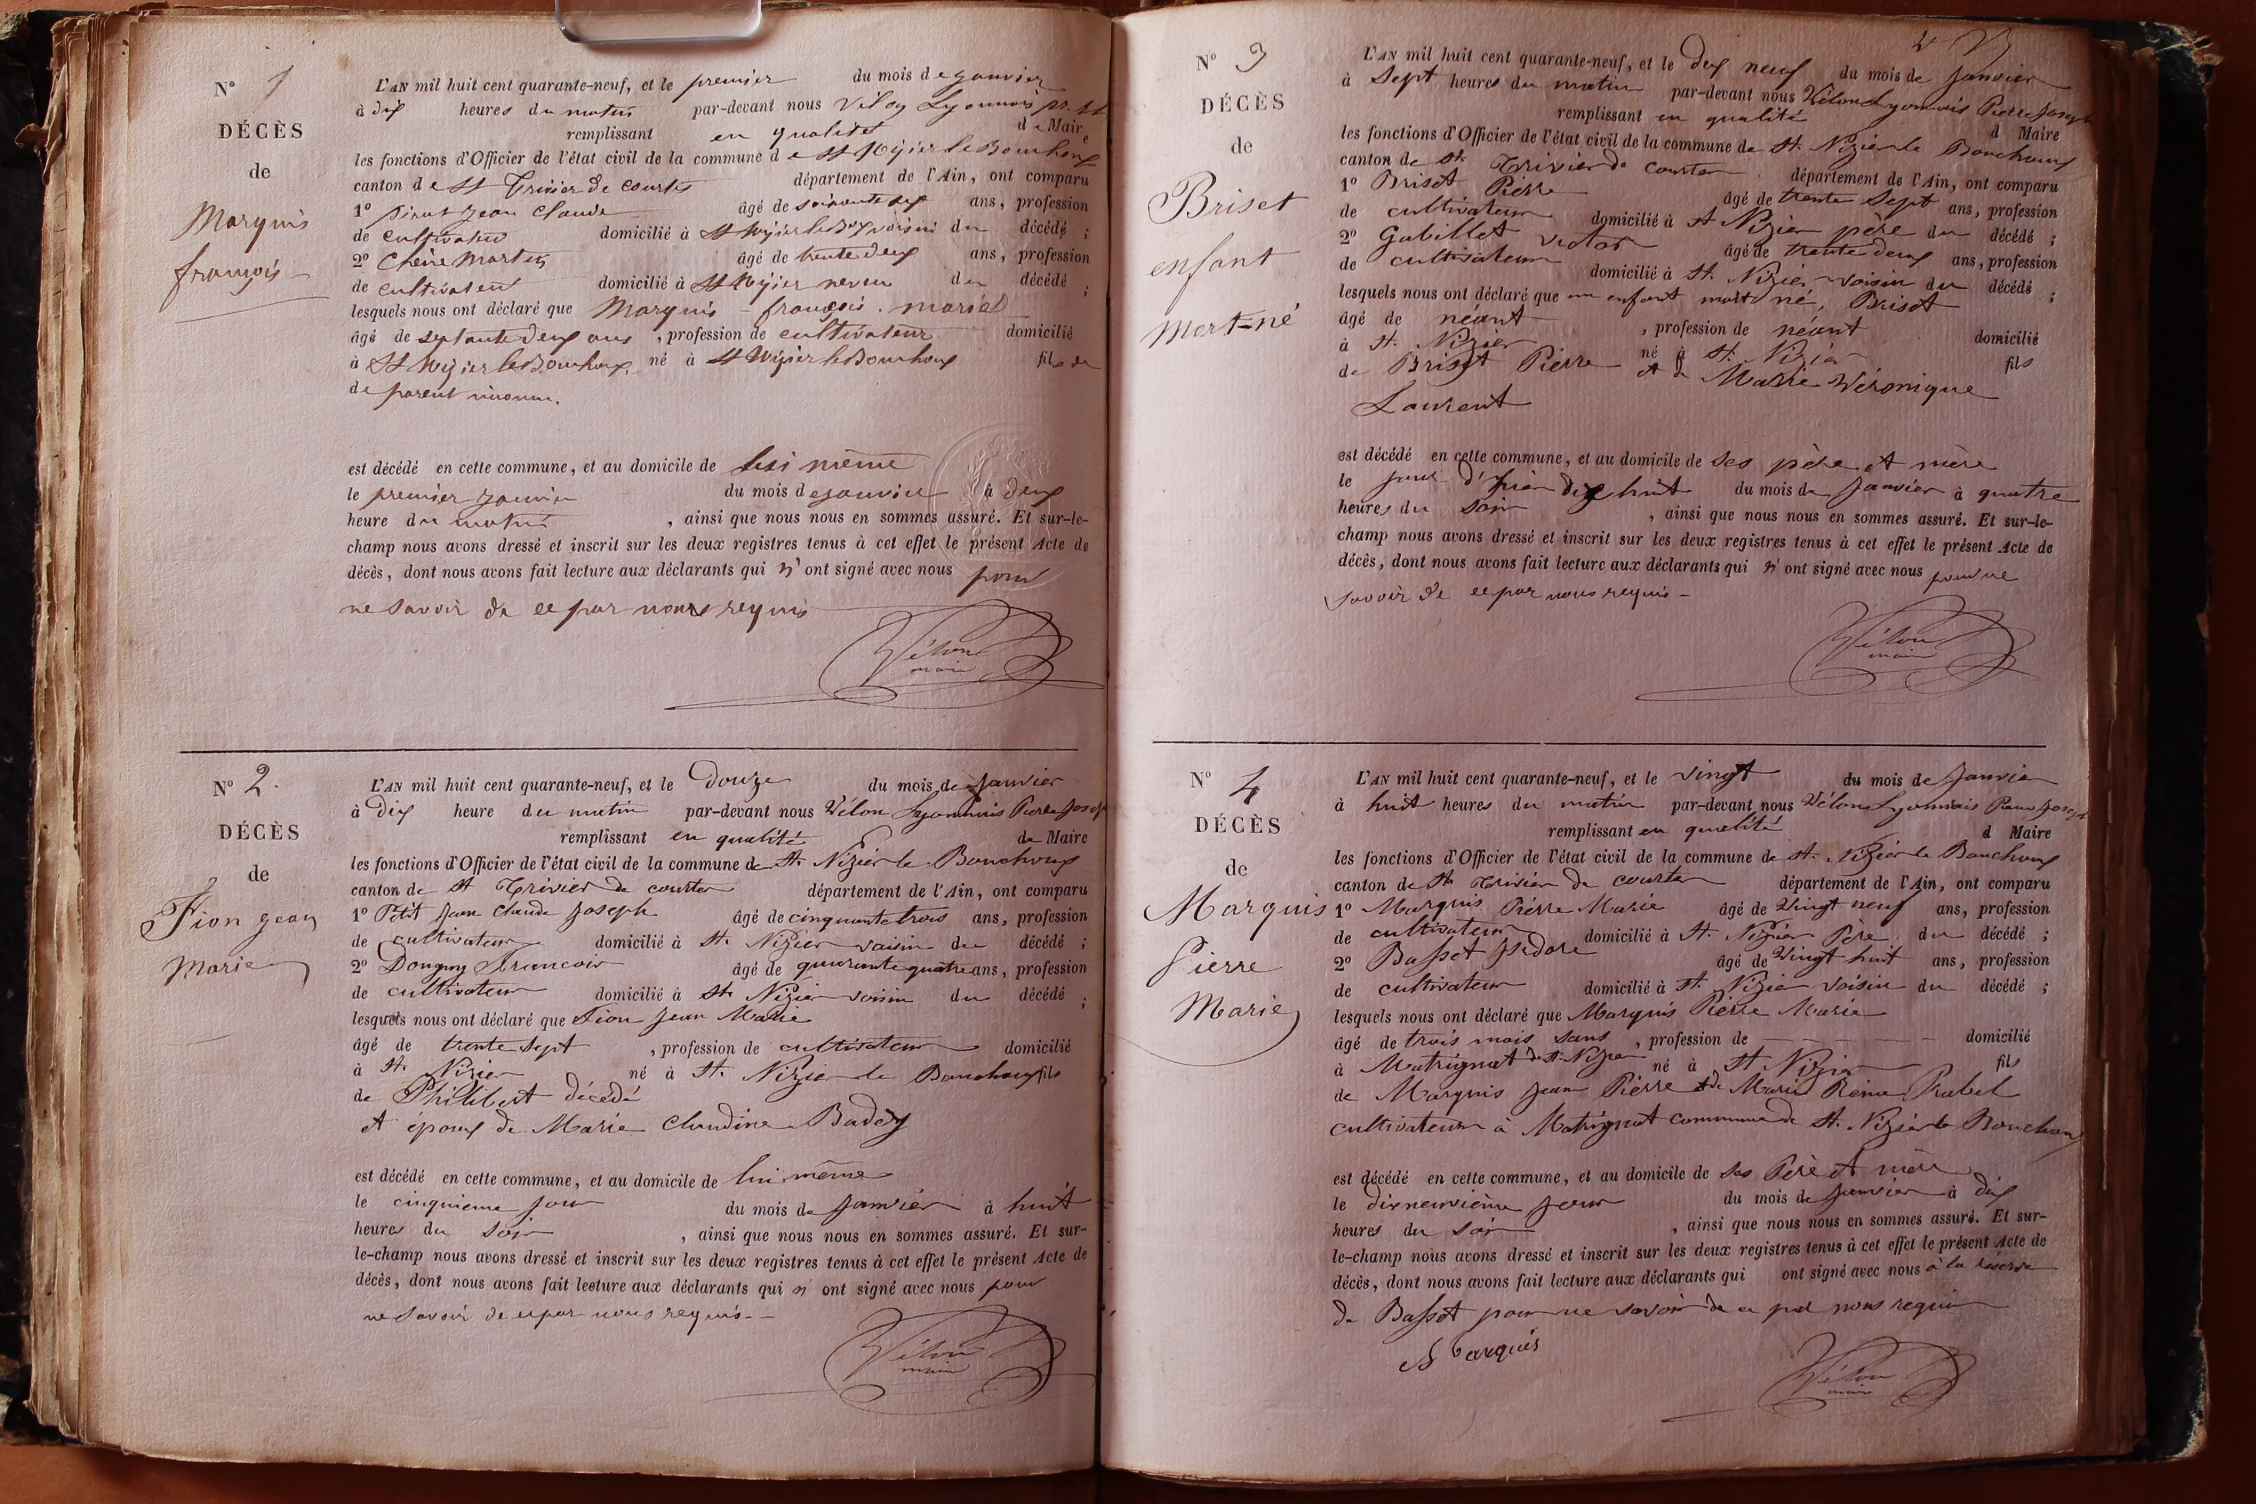 N° 1
DÉCÈS
de
Marquis
françois
L'AN mil huit cent quarante-neuf, et le premier du mois de janvier
à dix heures du matin par-devant nous Vélon Lyonnois
remplissant en qualité de Maire
les fonctions d'Officier de l'état civil de la commune de St Nizier le Bouchoux
canton de St Trivier de Courtes département de l'Ain, ont comparu
1° Jean Claude âgé de ans, profession
de cultivateur domicilié à St Nizier le B voisin du décédé ;
2° Chêne Martin âgé de trente deux ans, profession
de cultivateur domicilié à St Nizier neveu du décédé ;
lesquels nous ont déclaré que Marquis françois
âgé de septante deux ans, profession de cultivateur domicilié
à St Nizier le Bouchoux, né à St Nizier le Bouchoux fils de
de parent inconnu.
est décédé en cette commune, et au domicile de lui même
le premier janvier du mois de janvier à deux
heure du matin, ainsi que nous nous en sommes assuré. Et sur-le-
champ nous avons dressé et inscrit sur les deux registres tenus à cet effet le présent Acte de
décès, dont nous avons fait lecture aux déclarants qui n'ont signé avec nous pour
ne savoir de ce par nous requis
Vélon
maire
N° 2.
DÉCÈS
de
Fion jean
Marie
L'AN mil huit cent quarante-neuf, et le Douze du mois de Janvier
à Dix heure du matin par-devant nous Vélon Lyonnais Pierre Joseph
remplissant en qualité de Maire
les fonctions d'Officier de l'état civil de la commune de St. Nizier le Bouchoux
canton de St Trivier de courtes département de l'Ain, ont comparu
1° Petit Jean Claude Joseph âgé de cinquante trois ans, profession
de cultivateur domicilié à St. Nizier voisin du décédé ;
2° Donguy Francois âgé de quarante quatre ans, profession
de cultivateur domicilié à St. Nizier voisin du décédé ;
lesquels nous ont déclaré que Fion Jean Marie
âgé de trente sept, profession de cultivateur domicilié
à St. Nizier né à St. Nizier le Bouchoux fils
de Philibert décédé
et époux de Marie Claudine Badey
est décédé en cette commune, et au domicile de lui même
le cinquieme jour du mois de Janvier à huit
heures du soir, ainsi que nous nous en sommes assuré. Et sur-
le-champ nous avons dressé et inscrit sur les deux registres tenus à cet effet le présent Acte de
décès, dont nous avons fait lecture aux déclarants qui n'ont signé avec nous pour
ne savoir de ce par nous requis.
Vélon
maire
N° 3
DÉCÈS
de
Briset
enfant
mort-né
L'AN mil huit cent quarante-neuf, et le dix neuf du mois de Janvier
à Sept heures du matin par-devant nous Vélon Lyonnais Pierre Joseph
remplissant en qualité d Maire
les fonctions d'Officier de l'état civil de la commune de St. Nizier le Bouchoux
canton de St. Trivier de courtes département de l'Ain, ont comparu
1° Briset Pierre âgé de trente sept ans, profession
de cultivateur domicilié à St Nizier père du décédé ;
2° Gabillet Victor âgé de trente deux ans, profession
de cultivateur domicilié à St. Nizier voisin du décédé ;
lesquels nous ont déclaré que un enfant mort né, Briset
âgé de néant, profession de néant domicilié
à St. Nizier né à St. Nizier fils
de Briset Pierre et de Marie Véronique
Laurent
est décédé en cette commune, et au domicile de ses père et mère
le jour d'hier dix huit du mois de Janvier à quatre
heures du soir, ainsi que nous nous en sommes assuré. Et sur-le-
champ nous avons dressé et inscrit sur les deux registres tenus à cet effet le présent Acte de
décès, dont nous avons fait lecture aux déclarants qui n'ont signé avec nous pour ne
savoir de ce par nous requis
Vélon
maire
N° 4
DÉCÈS
de
Marquis
Pierre
Marie
L'AN mil huit cent quarante-neuf, et le vingt du mois de Janvier
à huit heures du matin par-devant nous Vélon Lyonnais Pierre Joseph
remplissant en qualité d Maire
les fonctions d'Officier de l'état civil de la commune de St. Nizier le Bouchoux
canton de St. Trivier de courtes département de l'Ain, ont comparu
1° Marquis Pierre Marie âgé de Vingt neuf ans, profession
de cultivateur domicilié à St. Nizier Père du décédé ;
2° Basset Isidore âgé de Vingt huit ans, profession
de cultivateur domicilié à St. Nizier voisin du décédé ;
lesquels nous ont déclaré que Marquis Pierre Marie
âgé de trois mois sans, profession de domicilié
à Matrignat de St. Nizier né à St Nizier fils
de Marquis Jean Pierre et de Marie Reine
cultivateurs à Matrignat commune de St. Nizier le Bouchoux
est décédé en cette commune, et au domicile de ses Père et mère
le dixneuvième jour du mois de Janvier à dix
heures du soir, ainsi que nous nous en sommes assuré. Et sur-
le-champ nous avons dressé et inscrit sur les deux registres tenus à cet effet le présent Acte de
décès, dont nous avons fait lecture aux déclarants qui ont signé avec nous à la réserve
de Basset pour ne savoir de ce par nous requis
Marquis
Vélon
maire